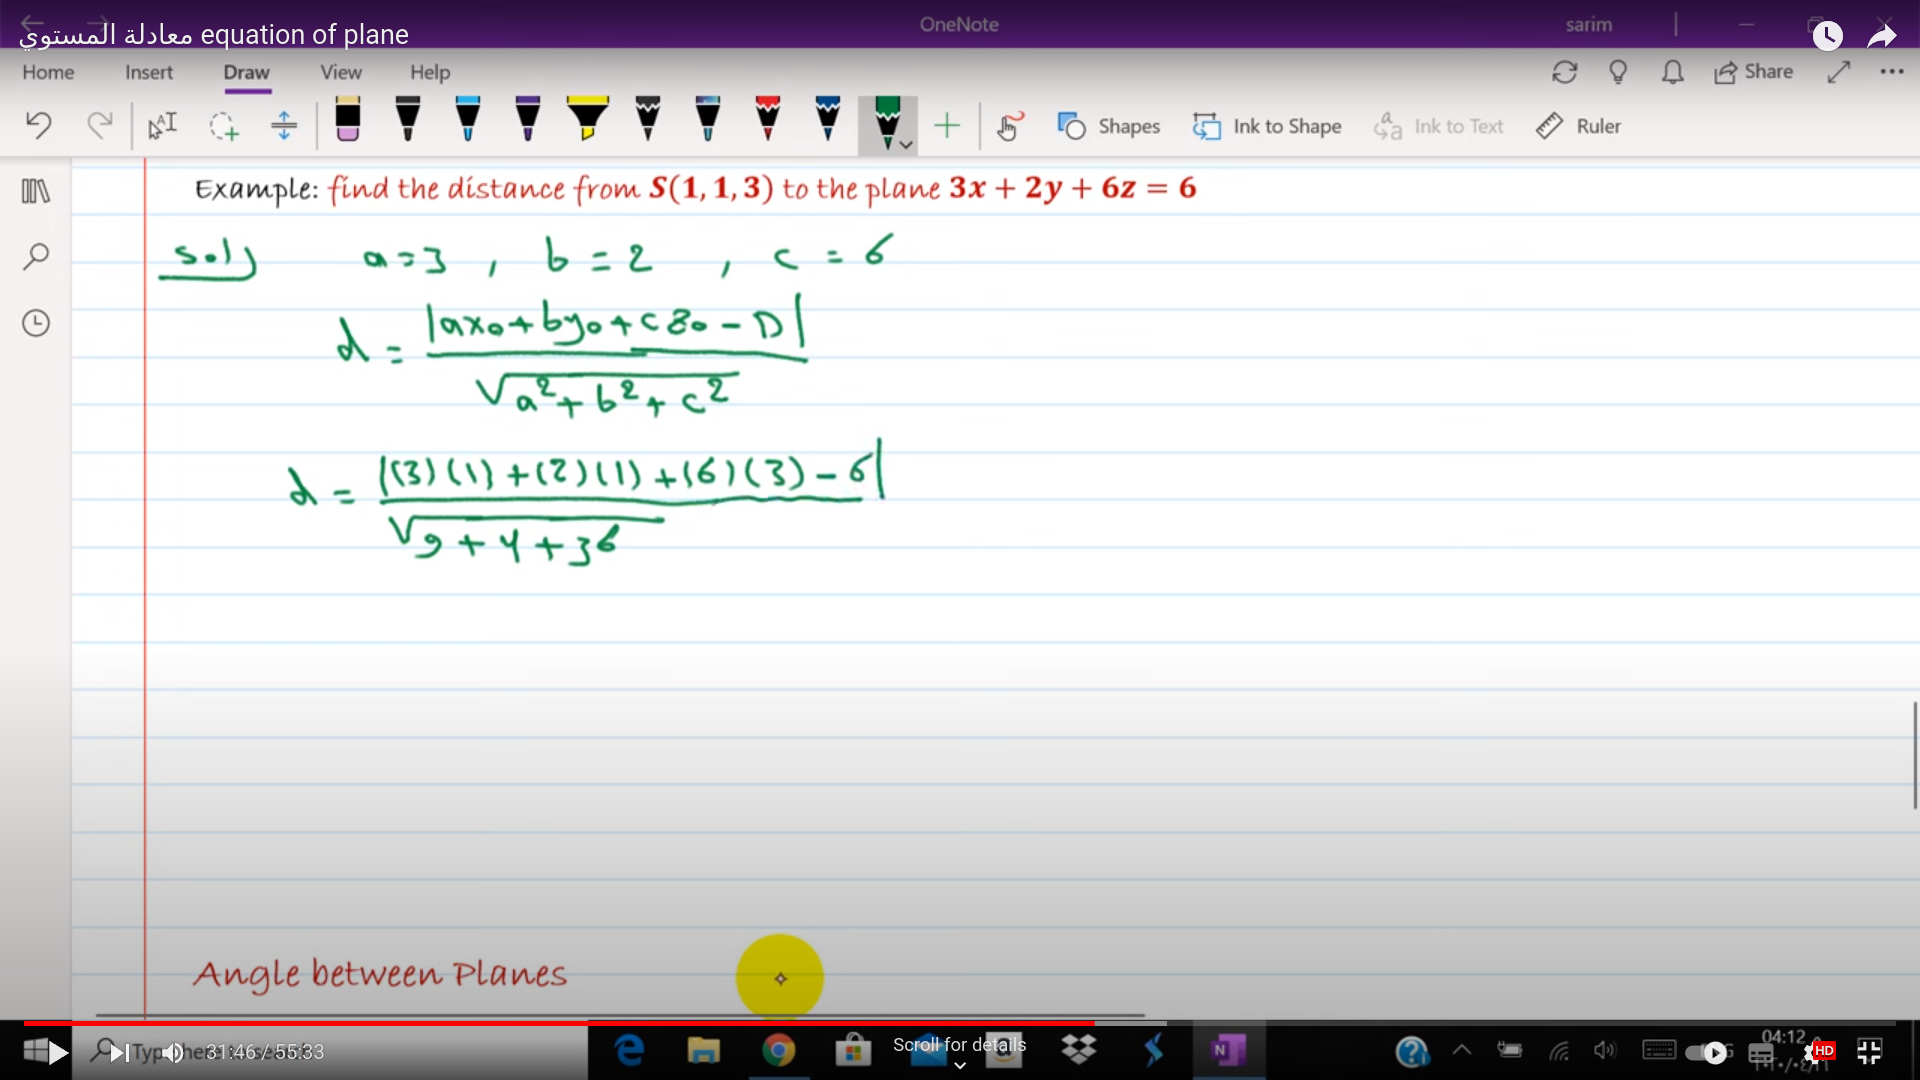 معادلة المستوي equation of plane
OneNote
sarim
Home Insert Draw View Help
Share
Shapes Ink to Shape Ink to Text Ruler
Example: find the distance from S(1, 1, 3) to the plane 3x + 2y + 6z = 6
sol)
a = 3 , b = 2 , c = 6
d = |ax₀ + by₀ + cz₀ - D|
√a² + b² + c²
d = |(3)(1) + (2)(1) + (6)(3) - 6|
√9 + 4 + 36
Angle between Planes
31:46 / 55:33
Scroll for details
04:12
HD